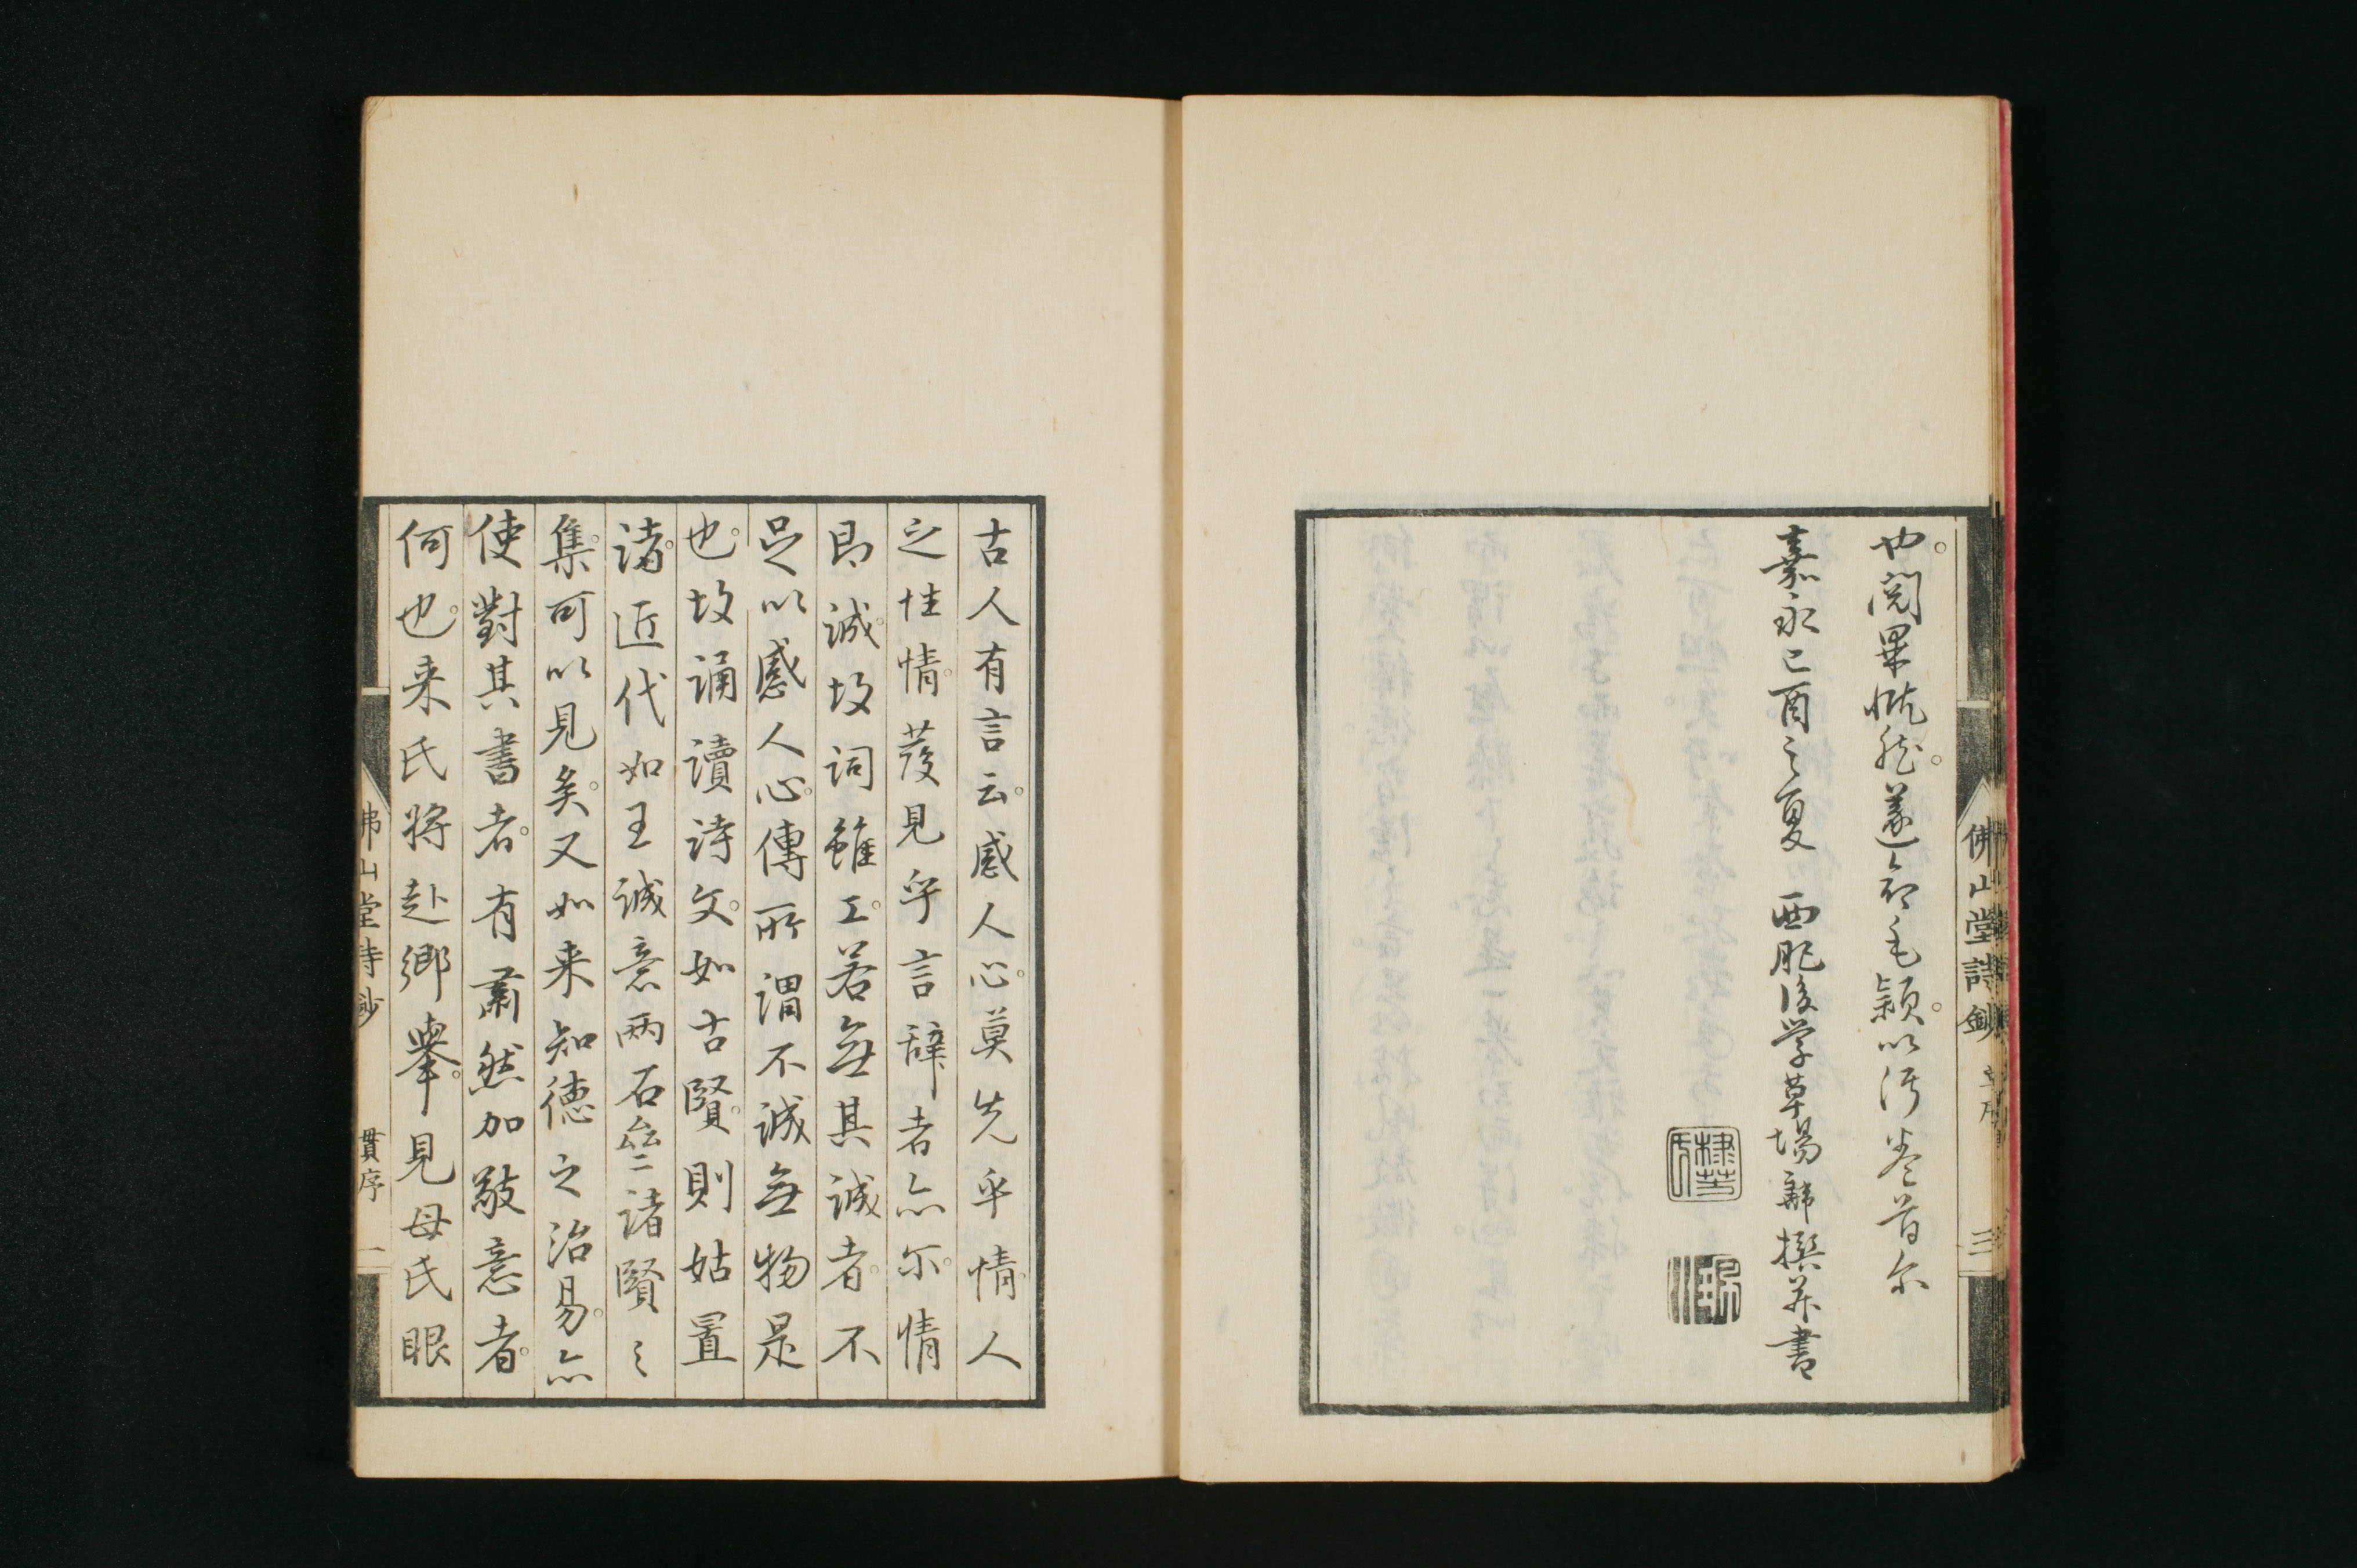 也。閲畢慨然。遂命毛穎。以汚巻首尓
嘉永己酉之夏 西肥後学草場韡撰并書
佛山堂詩鈔 草序 三
古人有言云。感人心。莫先乎情。人
之性情。發見乎言辞者亦尓。情
即誠。故詞雖工。若無其誠者。不
足以感人心。傳所謂不誠無物是
也。故誦讀詩文。如古賢。則姑置
諸。近代如王誠意兩石臺諸賢之
集。可以見矣。又如来知德之治易。亦
使對其書者。有肅然加敬意者。
何也。来氏将赴郷擧。見母氏眼
佛山堂詩鈔 貫序 一